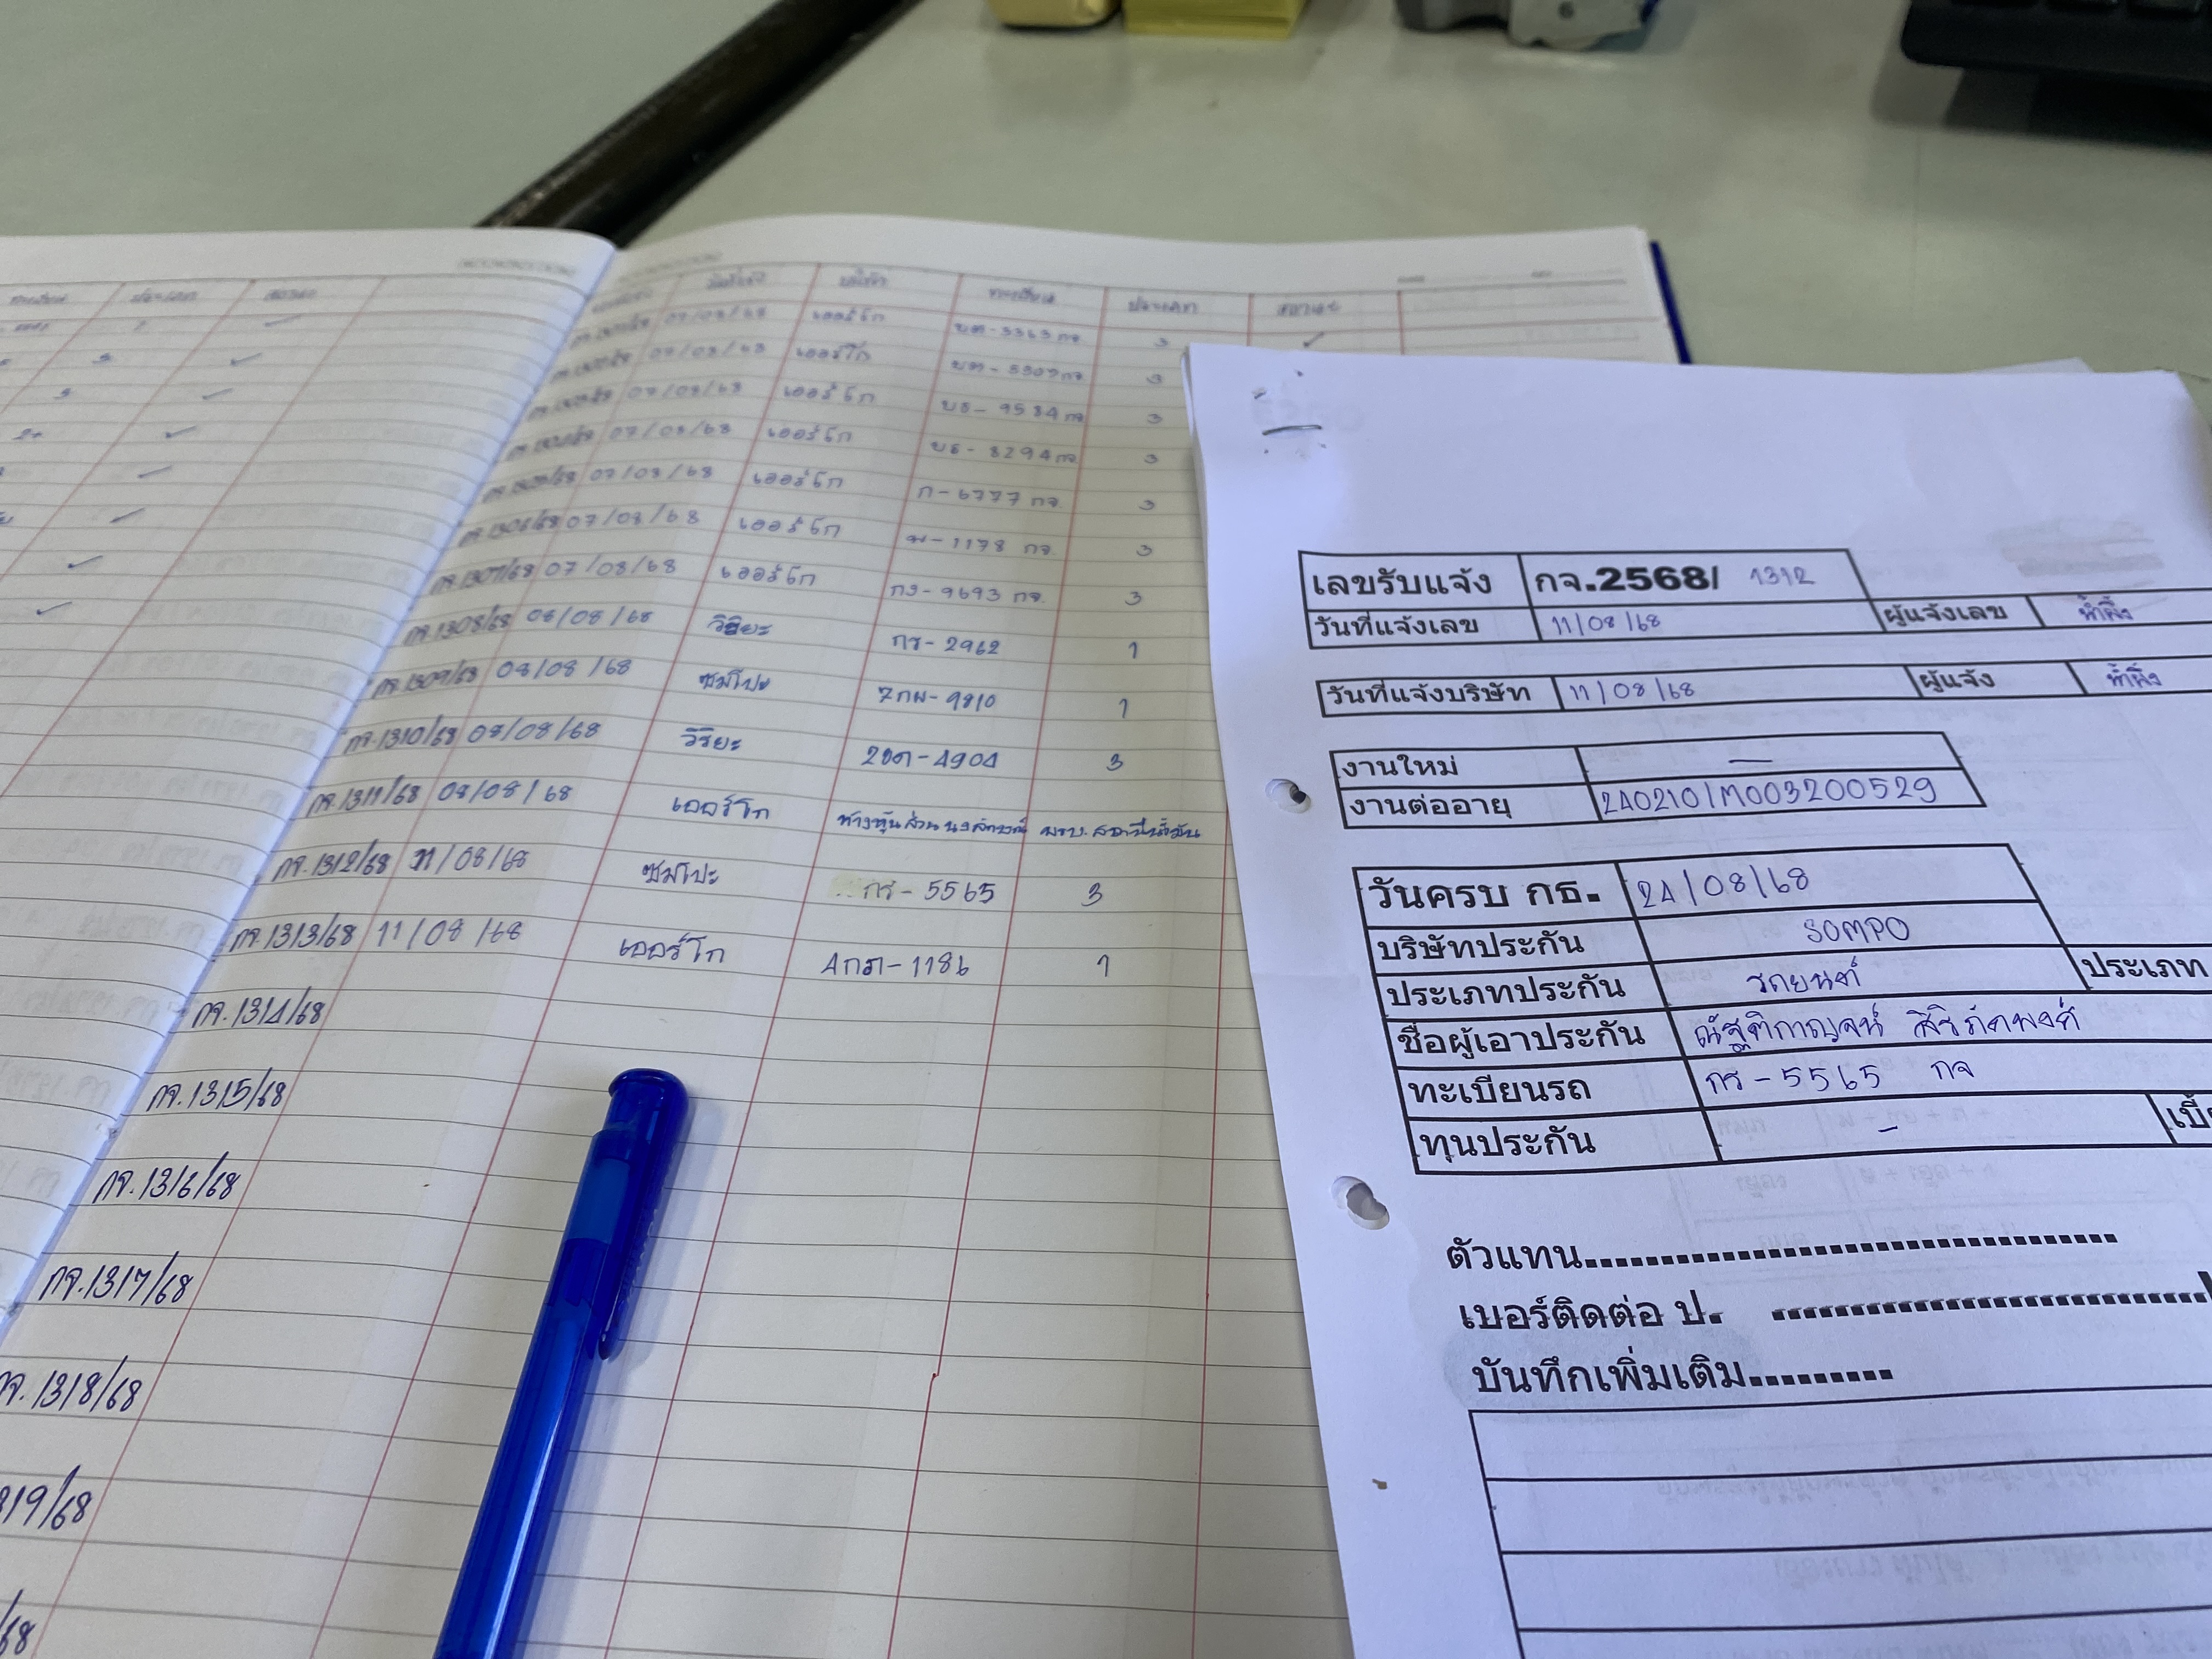 ทะเบียน ประเภท สถานะ
วันที่แจ้ง บริษัท ทะเบียน ประเภท สถานะ
07/08/68 เออร์โก บต-5365 กจ 3 ✓
07/08/68 เออร์โก บต-5507 กจ 3
07/08/68 เออร์โก บธ-9584 กจ 3
07/08/68 เออร์โก บธ-8294 กจ 3
07/08/68 เออร์โก ก-6777 กจ 3
กจ.1306/68 07/08/68 เออร์โก 1178 กจ. 3
กจ.1307/68 07/08/68 เออร์โก กง-9693 กจ. 3
กจ.1308/68 08/08/68 วิริยะ กร-2962 1
กจ.1309/68 08/08/68 ซมโปะ 7กผ-9810 1
กจ.1310/68 08/08/68 วิริยะ 4904 3
กจ.1311/68 08/08/68 เออร์โก ห้างหุ้นส่วน นงลักษณ์ พรบ. สถานีน้ำมัน
กจ.1312/68 11/08/68 ซมโปะ กร-5565 3
กจ.1313/68 11/08/68 เออร์โก 4กภ-1186 1
กจ.1314/68
กจ.1315/68
กจ.1316/68
กจ.1317/68
กจ.1318/68
319/68
/68
เลขรับแจ้ง กจ.2568/ 1312
วันที่แจ้งเลข 11/08/68 ผู้แจ้งเลข น้ำผึ้ง
วันที่แจ้งบริษัท 11/08/68 ผู้แจ้ง น้ำผึ้ง
งานใหม่ —
งานต่ออายุ 240210/M003200529
วันครบ กธ. 24/08/68
บริษัทประกัน SOMPO
ประเภทประกัน รถยนต์ ประเภท
ชื่อผู้เอาประกัน ณัฐฐิกาญจน์ สิริภัคพงศ์
ทะเบียนรถ กร-5565 กจ
ทุนประกัน - เบี้
ตัวแทน..............................
เบอร์ติดต่อ ป. ..............................
บันทึกเพิ่มเติม..........